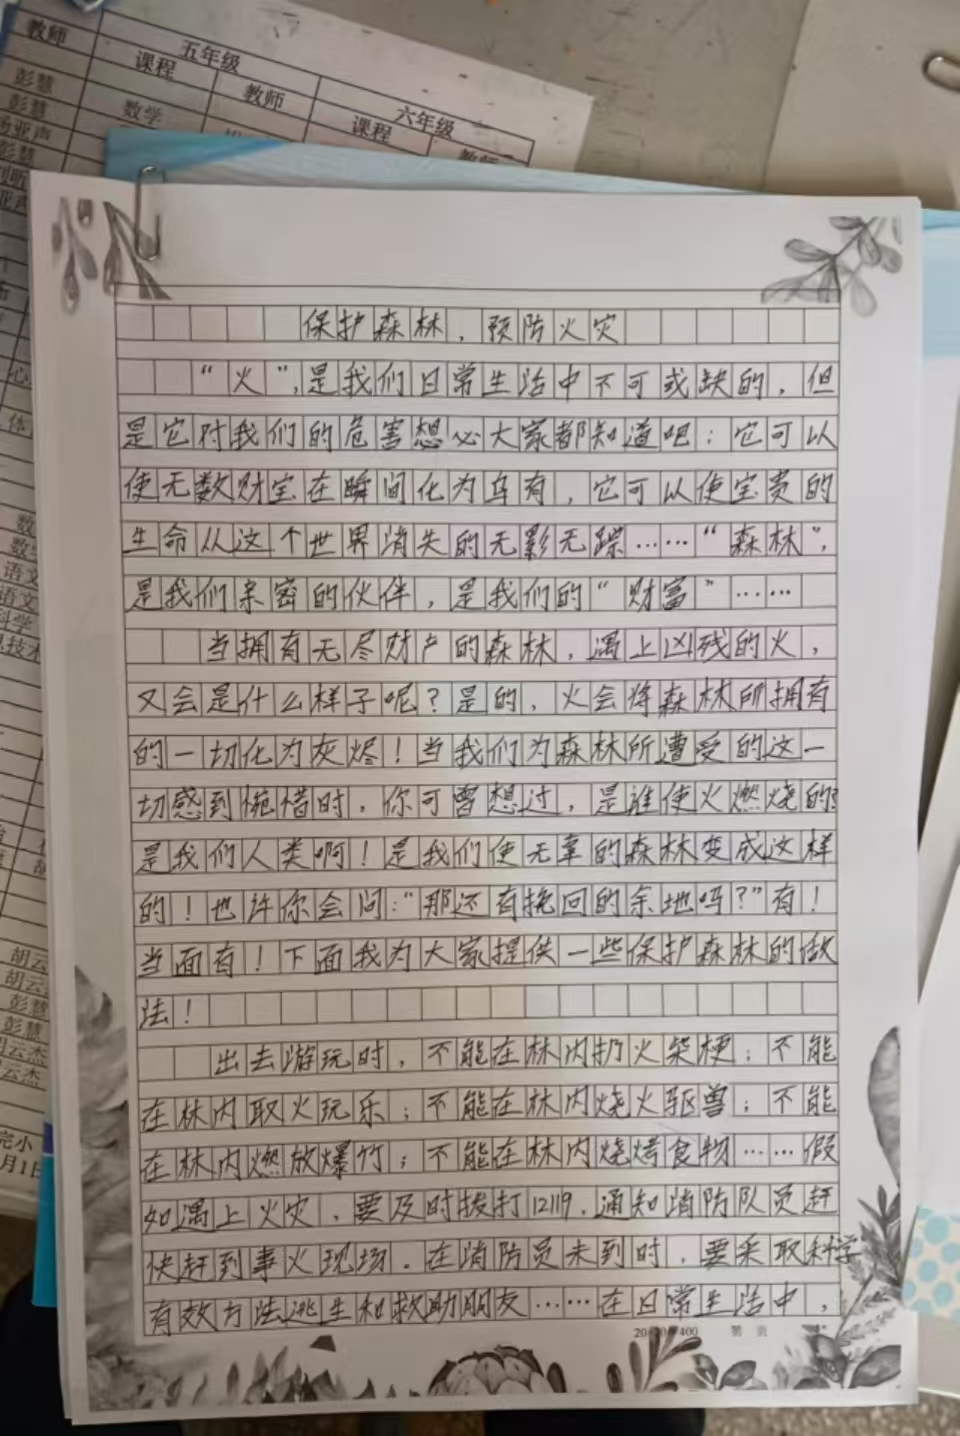 教师
五年级
课程
教师
六年级
课程
教师
彭慧
彭慧
数学
杨亚声
彭慧
保护森林，预防火灾
“火”，是我们日常生活中不可或缺的，但
是它对我们的危害想必大家都知道吧：它可以
使无数财宝在瞬间化为乌有，它可以使宝贵的
生命从这个世界消失的无影无踪……“森林”，
是我们亲密的伙伴，是我们的“财富”……
当拥有无尽财产的森林，遇上凶残的火，
又会是什么样子呢？是的，火会将森林所拥有
的一切化为灰烬！当我们为森林所遭受的这一
切感到惋惜时，你可曾想过，是谁使火燃烧的？
是我们人类啊！是我们使无辜的森林变成这样
的！也许你会问：“那还有挽回的余地吗？”有！
当面有！下面我为大家提供一些保护森林的做
法！
出去游玩时，不能在林内扔火柴梗；不能
在林内取火玩乐；不能在林内烧火驱兽；不能
在林内燃放爆竹；不能在林内烧烤食物……假
如遇上火灾，要及时拨打12119，通知消防队员赶
快赶到事火现场。在消防员未到时，要采取科学
有效方法逃生和救助朋友……在日常生活中，
语文
语文
科学
胡云
胡云
彭慧
彭慧
胡云杰
云杰
完小
月1日
第 页